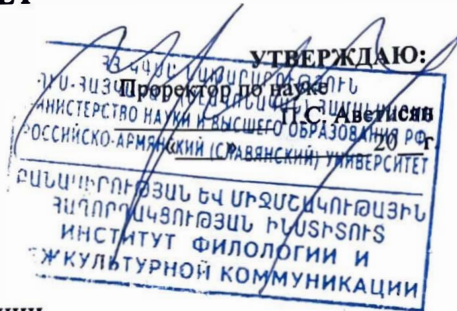 УТВЕРЖДАЮ:
Проректор по науке
П.С. Аветисян
20 г
МИНИСТЕРСТВО НАУКИ И ВЫСШЕГО ОБРАЗОВАНИЯ РФ
РОССИЙСКО-АРМЯНСКИЙ (СЛАВЯНСКИЙ) УНИВЕРСИТЕТ
ԲԱՆԱՍԻՐՈՒԹՅԱՆ ԵՎ ՄԻՋՄՇԱԿՈՒԹԱՅԻՆ
ՀԱՂՈՐԴԱԿՑՈՒԹՅԱՆ ԻՆՍՏԻՏՈՒՏ
ИНСТИТУТ ФИЛОЛОГИИ И
ЖКУЛЬТУРНОЙ КОММУНИКАЦИИ